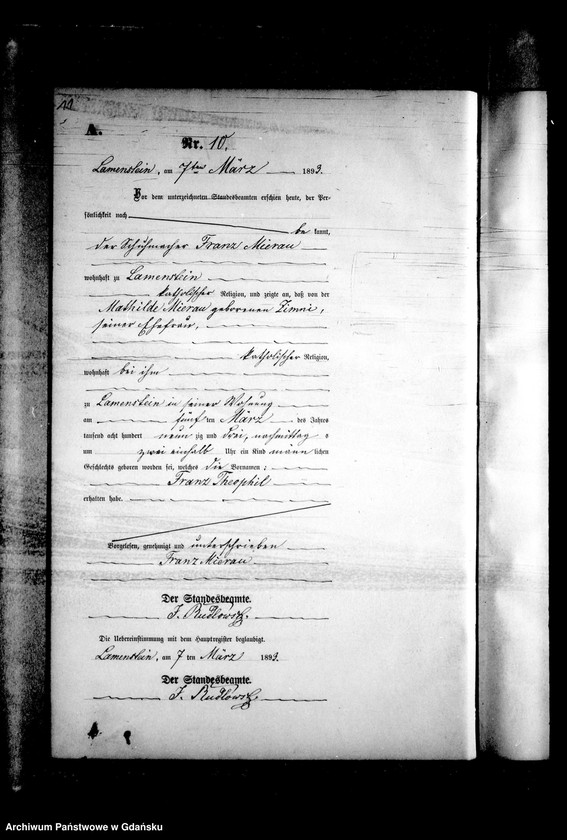 A.
Nr. 10.
Lamenstein, am 7ten März 1893.
Vor dem unterzeichneten Standesbeamten erschien heute, der Per-
sönlichkeit nach
be kannt,
der Schuhmacher Franz Mierau
wohnhaft zu Lamenstein
katholischer Religion, und zeigte an, daß von der
Mathilde Mierau geborenen Zimni,
seiner Ehefrau,
katholischer Religion,
wohnhaft bei ihm
zu Lamenstein in seiner Wohnung
am fünf ten März des Jahres
tausend acht hundert neun zig und drei, nachmittag s
um zwei einhalb Uhr ein Kind männ lichen
Geschlechts geboren worden sei, welches die Vornamen:
Franz Theophil
erhalten habe.
Vorgelesen, genehmigt und unterschrieben
Franz Mierau
Der Standesbeamte.
J. Rudlowski.
Die Uebereinstimmung mit dem Hauptregister beglaubigt.
Lamenstein, am 7 ten März 1893.
Der Standesbeamte.
J. Rudlowski.
Archiwum Państwowe w Gdańsku